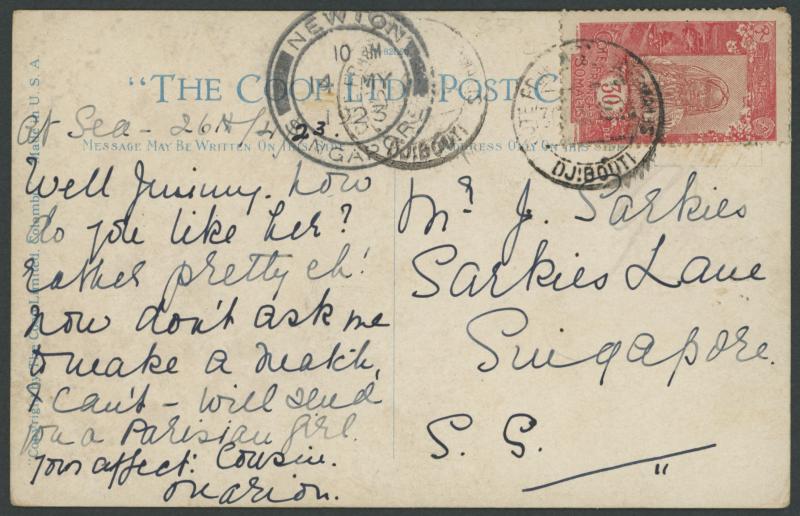 NEWTON
10 AM
14 MY
192
SINGAPORE
DJIBOUTI
DJIBOUTI
30
"THE COOP LTD." POST C
MESSAGE MAY BE WRITTEN ON THIS SIDE
ADDRESS ONLY ON THIS SIDE
Made in U.S.A.
At Sea - 26th/4/23.
Well Jimmy, how
do you like her?
Rather pretty eh!
now don't ask me
to make a match,
I Can't - will send
you a Parisian girl.
Your affect: Cousin.
Marion.
Mr. J. Sarkies
Sarkies Lane
Singapore.
S. S. "